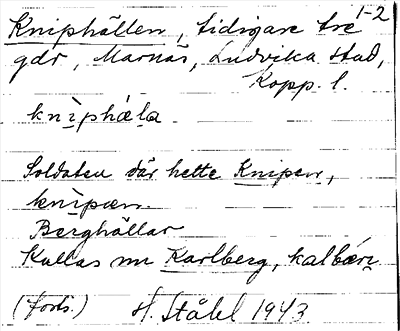 1-2
Kniphällen, tidigare tre
gdr, Marnäs, Ludvika stad,
Kopp. l.
knìphäla
Soldaten där hette Knipen,
knìpæn
Berghällar
Kallas nu Karlberg, kalbærj
(Forts.) H. Ståhl 1943.